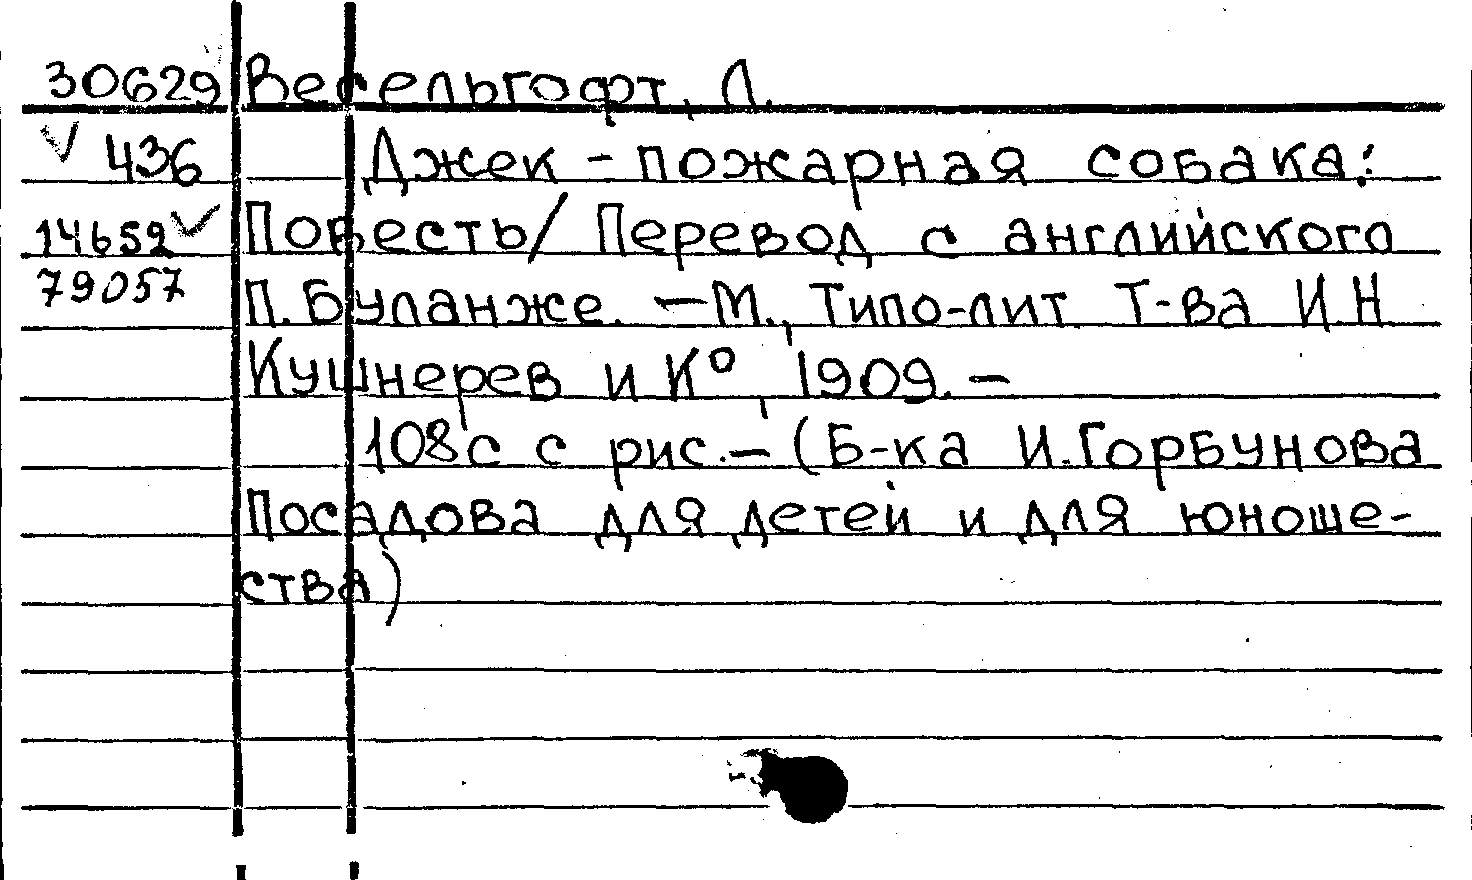 30629 Весельгофт, Л.
✓ 436 Джек - пожарная собака:
14652 ✓ Повесть/ Перевод с английского
79057 П. Буланже. — М., Типо-лит Т-ва И Н
Кушнерев и К°, 1909. —
108с с рис. — (Б-ка И. Горбунова
Посадова для детей и для юноше-
ства)